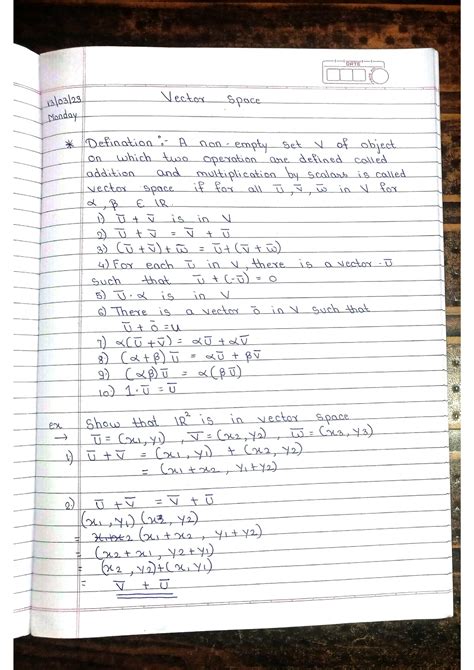 DATE
13/03/23
Monday
Vector Space
* Defination :- A non-empty set V of object
on which two operation are defined called
addition and multiplication by scalars is called
vector space if for all ū, v̄, w̄ in V for
α, β ∈ IR.
1) ū + v̄ is in V
2) ū + v̄ = v̄ + ū
3) (ū + v̄) + w̄ = ū + (v̄ + w̄)
4) For each ū in V, there is a vector -ū
such that ū + (-ū) = 0
5) ū · α is in V
6) There is a vector ō in V such that
ū + ō = u
7) α(ū + v̄) = αū + αv̄
8) (α + β)ū = αū + βv̄
9) (αβ)ū = α(βū)
10) 1 · ū = ū
ex Show that IR² is in vector space
→ ū = (x1, y1) , v̄ = (x2, y2) , w̄ = (x3, y3)
1) ū + v̄ = (x1, y1) + (x2, y2)
= (x1 + x2, y1 + y2)
2) ū + v̄ = v̄ + ū
(x1, y1) (x2, y2)
= (x1 + x2, y1 + y2)
= (x2 + x1, y2 + y1)
= (x2, y2) + (x1, y1)
= v̄ + ū